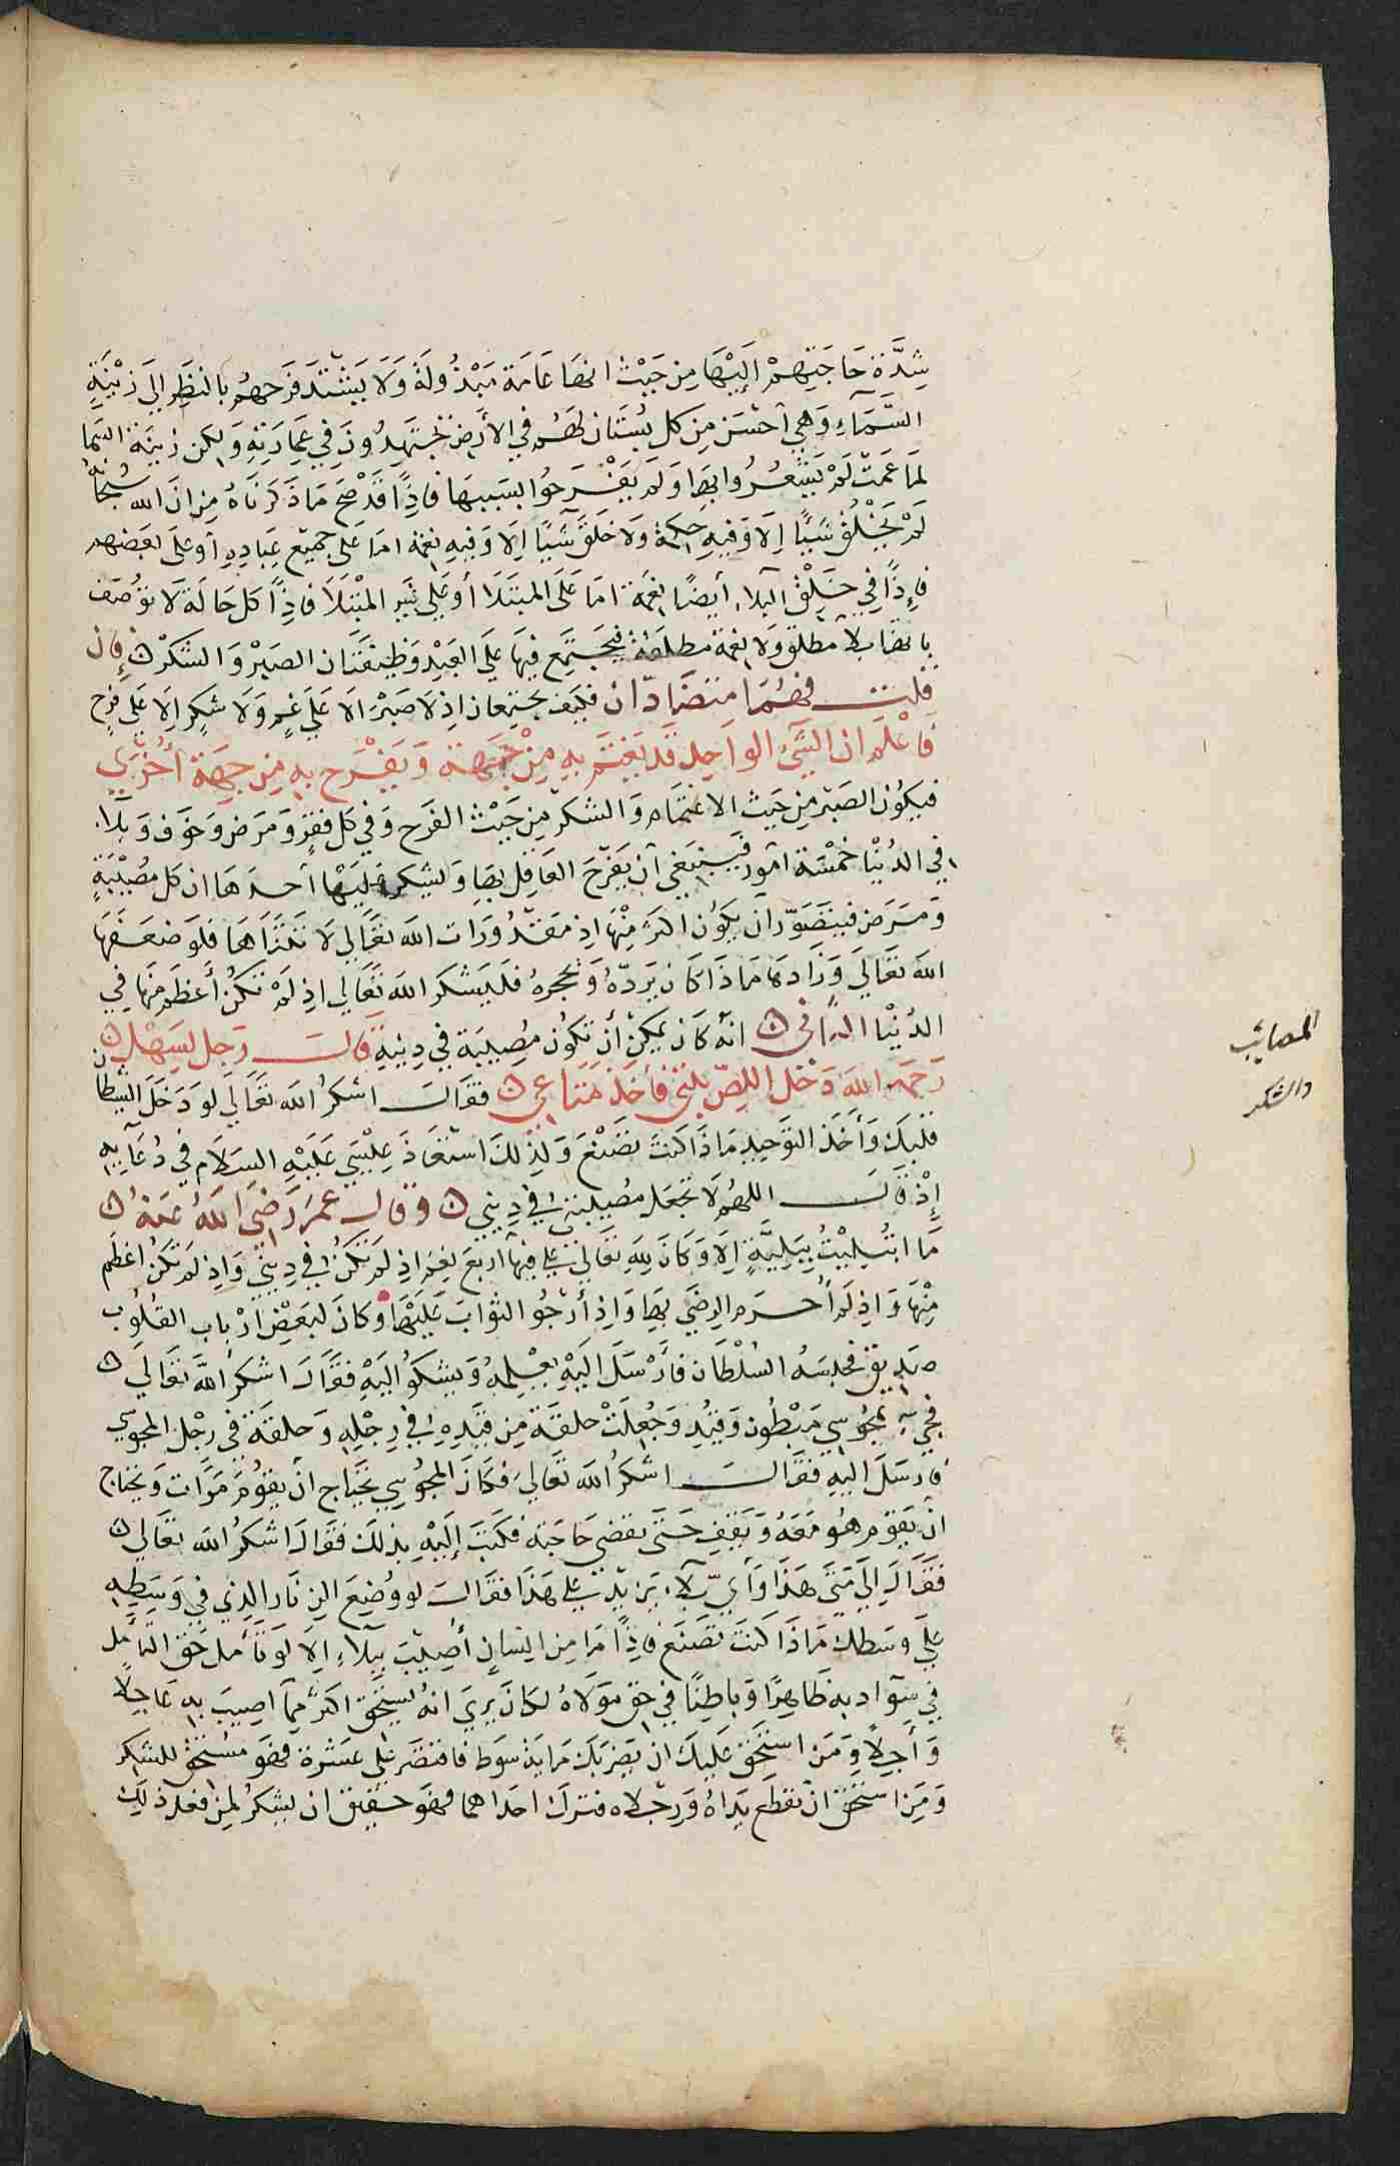 شِدَّة حَاجَتِهِمْ اِلَيْهَا مِن حَيْث انها عَامَة مَبْذُولَة وَلَا يَشْتَدّ فَرَحهُم بالنظَر اِلَى زِيْنَةِ
السَّمَآءِ وَهِي آحْسَن مِن كل بُسْتَان لَهُم في الأرَض يَجْتَهِدُونَ فِي عِمَارَتِهِ وَلكن زينَة السَّما
لمَا عَمّت لَمْ يَشْعُرُوا بِهَا وَلَم يَفْرَحُوا بسَببهَا فاذًا قَدْ صَحَ مَا ذَكَرنَاهُ مِن انَ الله سُبْحَانهُ
لَمْ يَخْلُق شَيْئًا اِلَا وَفيهِ حِكمَة وَلَا خَلَقَ شَيْئًا اِلَا وَفِيهِ نِعْمَة امَا عَلى جميْع عِبَادِهِ اَو عَلَى بَعضهم
فإِذًا فِي خَلْق البَلاء أيضًا نِعْمَة امَا عَلَى المبتَلَا أو عَلَى غَيْر المبْتَلَا فاذًا كل حَالَة لَا تُوصَف
بانهَا بلاء مطلق وَلا نِعْمَة مطلقة فَيجْتَمِع فِيهَا عَلَى العَبْد وَظِيْفَتَان الصَبْرُ وَالشكْر ن فإن
قلت فَهُمَا مُتَضَادّان فكَيْف يَجتمعَان اِذ لَا صَبْر الَا عَلَى غَمٍ وَلَا شكِر اِلَا عَلَى فرَحٍ
فَاعْلَم ان الشَيْء الوَاحِد قَد يَغْتَمّ بهِ مِنْ جِهَة وَيَفْرَح بهِ مِن جِهَة أخْرَى
فيَكُون الصَبْر مِن حَيث الاغتمَام وَالشكر مِن حَيْث الفَرح وَفي كَل فقرٍ وَمرَض وَخَوف وَبَلَاء
في الدُنْيا خَمْسَة امُور فَيَنْبَغِي آن يَفْرَحَ العَاقِل بهَا وَيشكر عَلَيْهَا آحدهَا ان كل مُصِيْبَةٍ
وَمَرَض فيتصَوّر آن يكون اكثر مِنْهَا اذ مَقدُورَات الله تعَالى لَا تتَنَاهَا فَلَو ضعَّفهَا
الله تعَالَى وَزَادهَا مَاذَا كَان يَردّهُ وَيَحْجزهُ فَليَشكر الله تَعَالى اذِ لَمْ تَكن أَعْظَم مِنهَا في
الدُنْيا الثاني ن انه كَان يمكن أن تَكون مُصِيبَة في دِينهِ قَالَ رَجل لِسَهْل ن
رَحمَهُ الله دَخَل اللِصّ بَيْتى فأخَذَ مَتَاعي ن فقَالَ اشكرُ الله تعَالَى لَو دَخَلَ الشيْطان
قلبَكَ وَأَخَذ التوَحيد مَاذَا كنتَ تَصْنَع وَلِذلكَ اسْتعَاذَ عِيْسَى عَلَيْهِ السَلَام في دُعَآئِهِ
إِذْ قَالَ اللهُم لَا تجْعَل مُصِيْبَتِي في دِيْني ن وَقَال عُمَر رَضِىَ اللهُ عَنهُ ن
مَا ابتُلِيْتُ بِبَلِيَّةٍ اِلَا وَكَانَ لِلّهِ تَعَالَى عَلي فِيهَا أربع نِعَم اذ لَم تَكنْ في دِيْني وَاذ لَم تكن اعْظَم
مِنْهَا وَاذ لَم أحْرَم الرضَى بهَا وَاذ أرْجُوا الثوَاب عَلَيْهَا وكَانَ لبَعْض ارْبَاب القُلُوب
صَدِيق فحَبسَهُ السُلْطَان فأرْسَلَ اليَهِ يُعْلِمهُ وَيشكوا اليَهِ فقَالَ اشكرُ اللهَ تعَالَى ن
فجيء بمَجُوسِي مَبْطُون وَقيّد وَجُعِلَتْ حلقَة مِن قَيْدِهِ في رِجْلِهِ وَحلقَة في رِجْل المجُوسي
فارسَلَ اليهِ فقَالَ اشكرُ الله تعَالى فكَان المجُوسِي يحْتَاج ان يقوُم مَرّات وَيحْتاج
ان يَقوم هُو مَعَهُ وَيَقِف حَتى يقضى حَاجَته فكتبَ إِليْهِ بذلك فقَالَ اشكرُ الله تعَالى ن
فقَالَ اِلَى مَتَى هَذَا وَأيّ بلَاء يَزيْد عَلى هَذَا فقَالَ لو وُضِعَ الزنّار الذِي في وَسَطِهِ
عَلَى وسَطكَ مَاذَا كنْتَ تَصْنَع فاذًا مَا مِن انسَانٍ أُصِيْبَ بِبَلَاءٍ اِلَا لَو تَأمل حَق التَأمل
في سُوآ ادبِهِ ظَاهِرًا وَباطِنًا في حَقِ مَولَاهُ لكَانَ يَرى انهُ يَسْتَحق اكثر مِما اصِيبَ بهِ عَاجِلًا
وَأجِلاً وَمَن استحَق عَلَيكَ ان يَضربَكَ مَايَة سَوط فاقتَصَر عَلى عَشرة فهَو مُسْتَحق للشكر
وَمَن استحَق ان تقطَع يَدَاهُ وَرجْلاه فتركَ احدَاهما فهَو حَقِيْق ان يشكرُ لِمن فعَل ذلِكَ
المصايب
والشكر